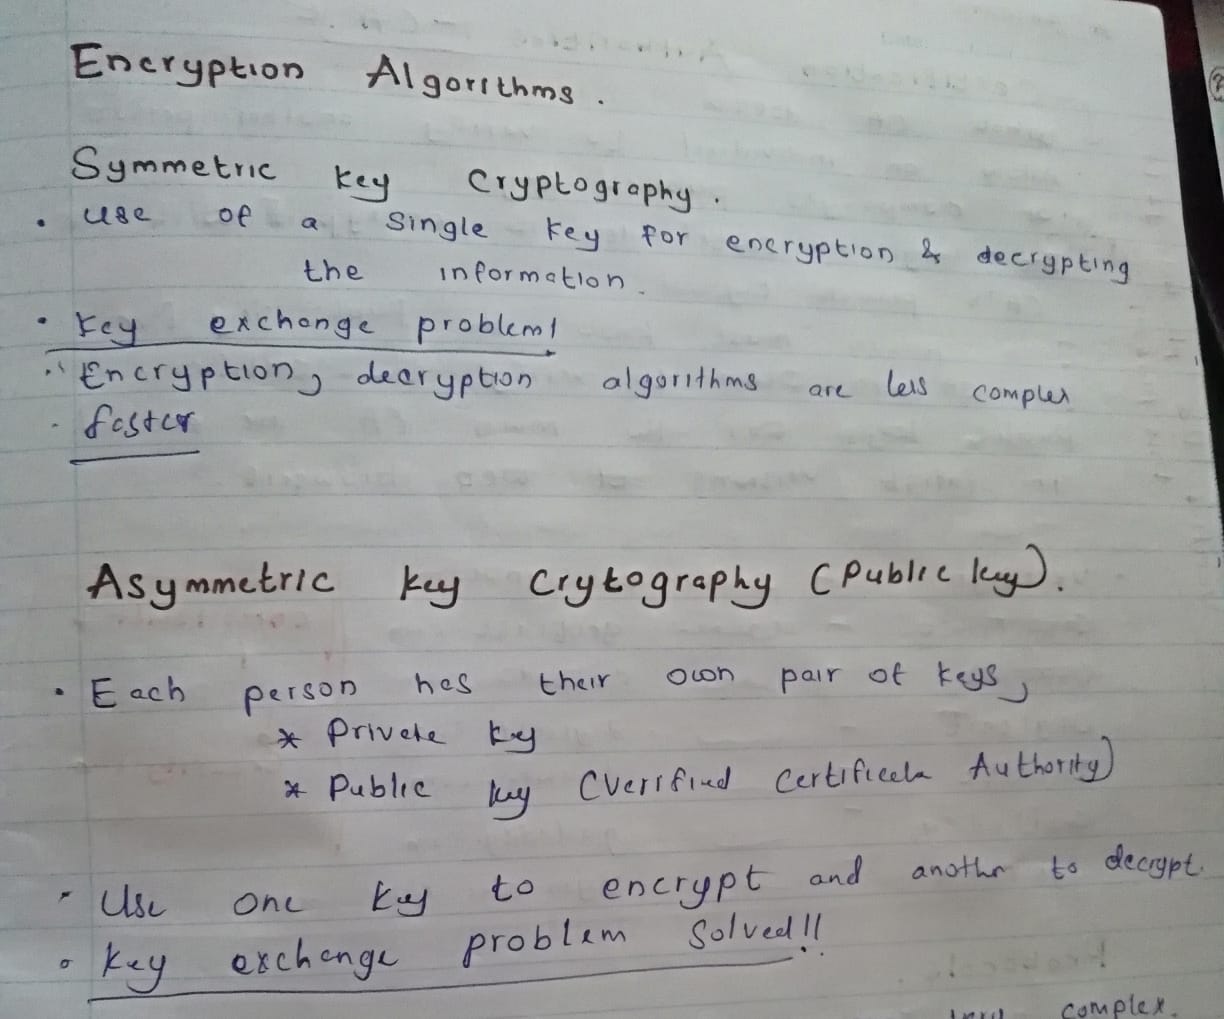 Encryption Algorithms.
Symmetric key Cryptography.
• use of a single key for encryption & decrypting
the information.
• Key exchange problem!
• Encryption, decryption algorithms are less complex
• faster
Asymmetric key Crytography (Public key).
• Each person has their own pair of keys,
* Private key
* Public key (Verified Certificate Authority)
• Use one key to encrypt and another to decrypt.
• Key exchange problem Solved!!
complex.